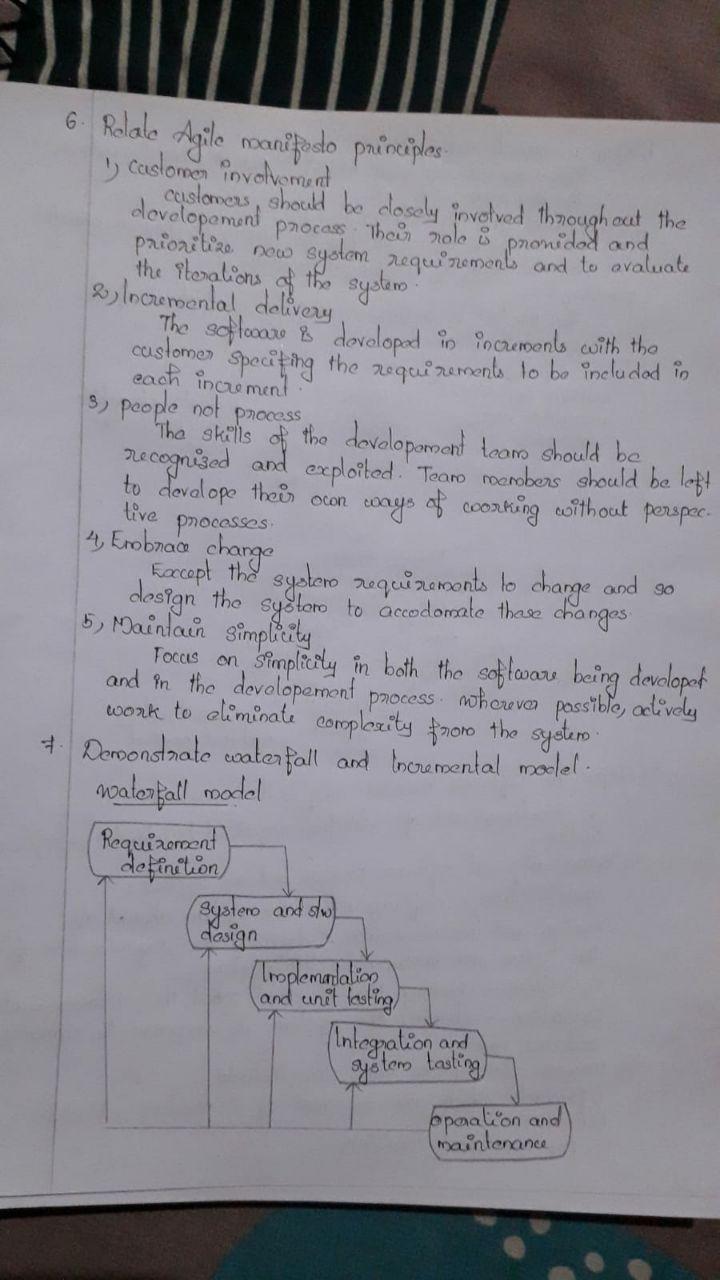 6. Relate Agile manifesto principles.
1) Customer involvement
customers should be closely involved throughout the
developement process. Their role is provided and
prioritize new system requirements and to evaluate
the iterations of the system.
2) Incremental delivery
The software is developed in increments with the
customer specifing the requirements to be included in
each increment.
3) people not process
The skills of the developement team should be
recognised and exploited. Team members should be left
to develope their own ways of working without perspec-
tive processes.
4) Embrace change
Except the system requirements to change and so
design the system to accodomate these changes.
5) Maintain simplicity
Focus on simplicity in both the software being developed
and in the developement process. wherever possible, actively
work to eliminate complexity from the system.
7. Demonstrate waterfall and Incremental model.
waterfall model
Requirement
definition
System and s/w
design
Implementation
and unit testing
Integration and
system testing
operation and
maintenance